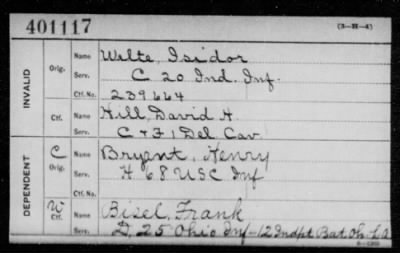 401117
(3-H-4)
INVALID
Orig. Name Welte, Isidor
Serv. C 20 Ind. Inf.
Ctf. No. 239664
Ctf. Name Hill, David H.
Serv. C & F 1 Del Cav
DEPENDENT
C Orig. Name Bryant, Henry
Serv. H 68 USC Inf
W Ctf. Name Bisel, Frank
Serv. D, 25 Ohio Inf - 12 Indpt Bat Oh L A